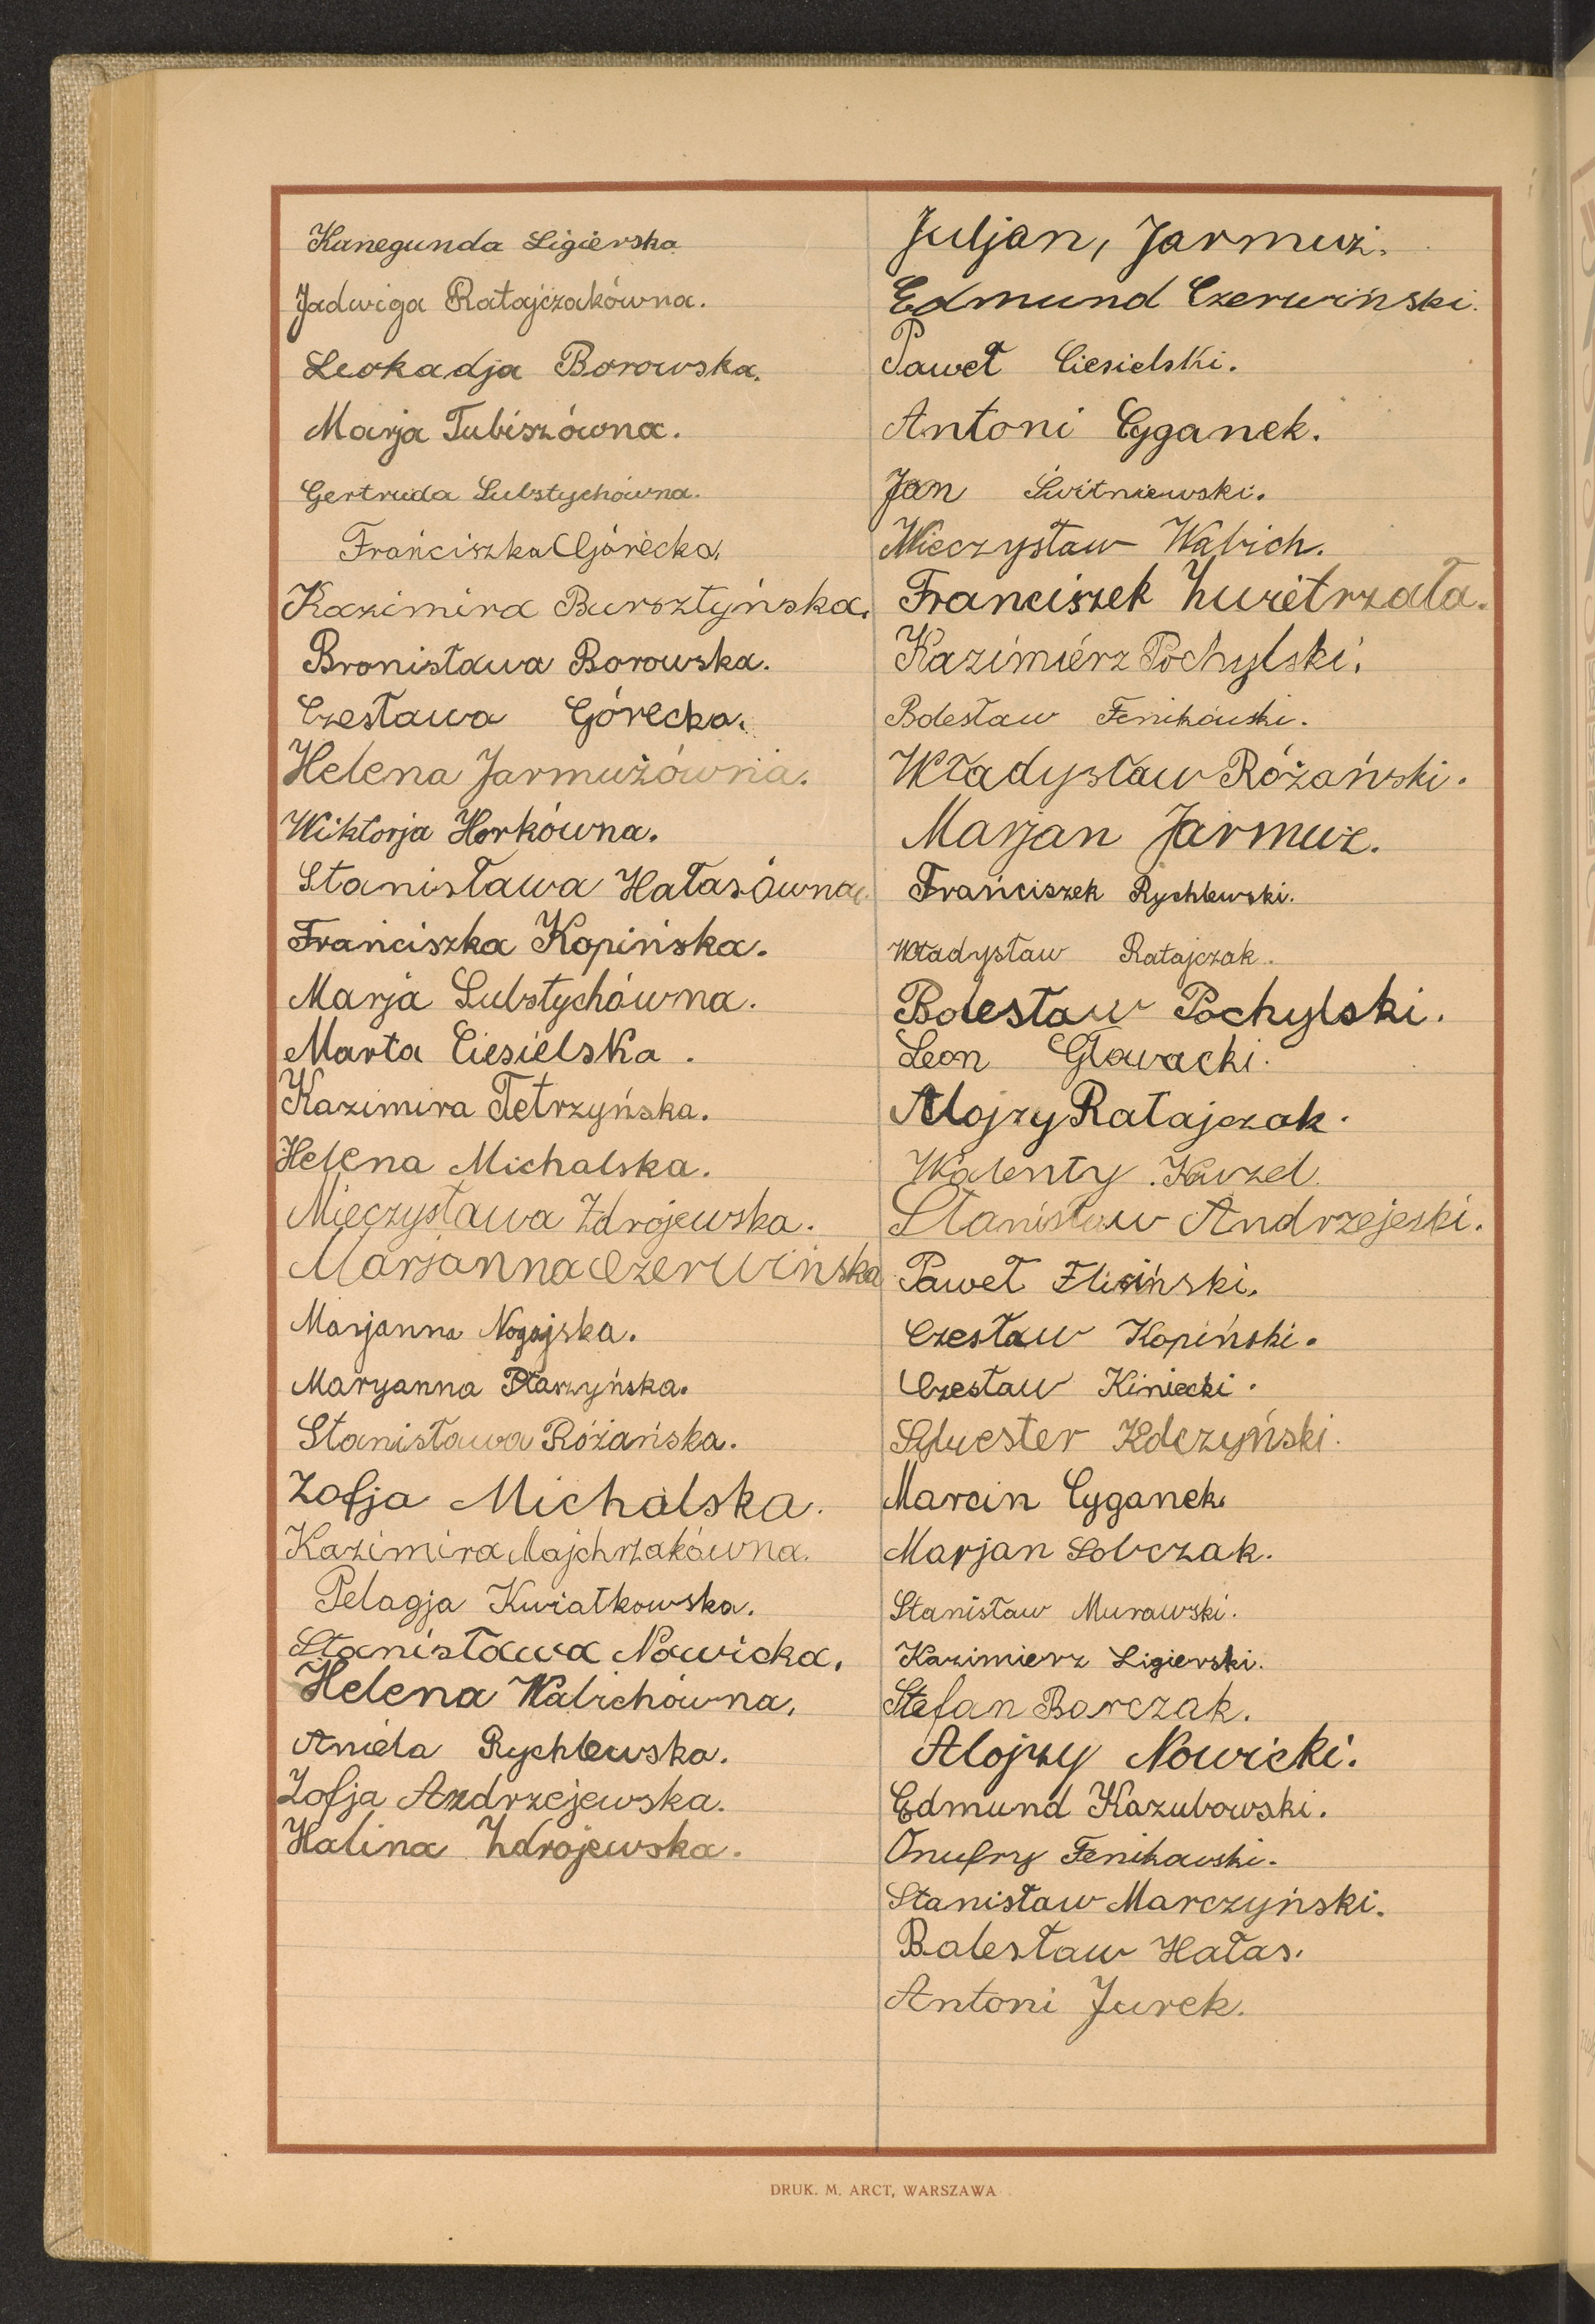 Kanegunda Ligierska
Jadwiga Ratajczakówna.
Leokadja Borowska.
Marja Tubiszówna.
Gertruda Lubstychówna.
Franciszka Górecka.
Kazimira Bursztyńska.
Bronisława Borowska.
Czesława Górecka.
Helena Jarmużówna.
Wiktorja Horkówna.
Stanisława Hałasówna.
Franciszka Kopińska.
Marja Lubstychówna.
Marta Ciesielska.
Kazimira Tetrzyńska.
Helena Michalska.
Mieczysława Zdrojewska.
Marjanna Czerwińska
Marjanna Nogajska.
Maryanna Ptarzyńska.
Stanisława Różańska.
Zofja Michalska.
Kazimira Majchrzakówna.
Pelagja Kwiatkowska.
Stanisława Nowicka.
Helena Walichówna.
Aniela Rychlewska.
Zofja Andrzejewska.
Halina Zdrojewska.
Juljan, Jarmuż.
Edmund Czerwiński.
Paweł Ciesielski.
Antoni Cyganek.
Jan Świtniewski.
Mieczysław Walich.
Franciszek Zwietrzała.
Kazimierz Pochylski.
Bolesław Fenikowski.
Władysław Różański.
Marjan Jarmuż.
Franciszek Rychlewski.
Władysław Ratajczak.
Bolesław Pochylski.
Leon Głowacki.
Alojzy Ratajczak.
Walenty Kurzel.
Stanisław Andrzejeski.
Paweł Flisiński.
Czesław Kopiński.
Czesław Kiniecki.
Sylwester Kolczyński.
Marcin Cyganek.
Marjan Sobczak.
Stanisław Murawski.
Kazimierz Ligierski.
Stefan Barczak.
Alojzy Nowicki.
Edmund Kazubowski.
Onufry Fenikowski.
Stanisław Marczyński.
Bolesław Hałas.
Antoni Jurek.
DRUK. M. ARCT, WARSZAWA